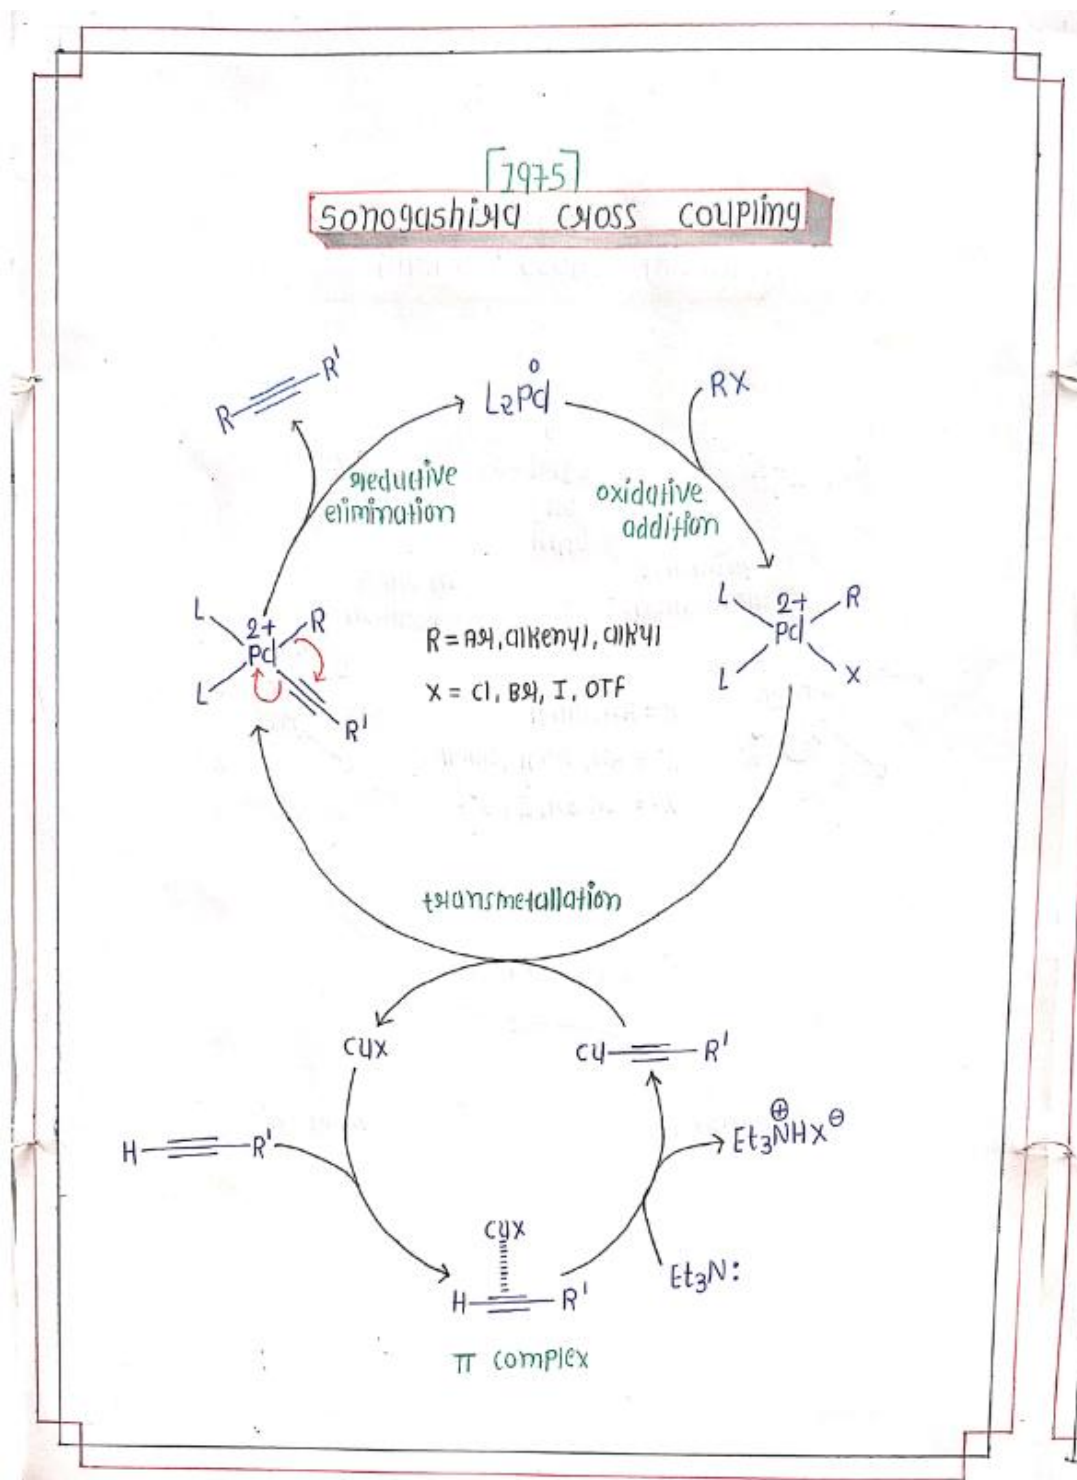 [1975]
Sonogashira cross coupling
R—≡—R'
L₂Pd⁰
RX
reductive
elimination
oxidative
addition
L
2+
Pd
R
L
R'
R = Ar, alkenyl, alkyl
X = Cl, Br, I, OTF
L
2+
Pd
R
L
X
transmetallation
CuX
Cu—≡—R'
H—≡—R'
Et₃N⊕HX⊖
CuX
H—≡—R'
Et₃N:
π complex